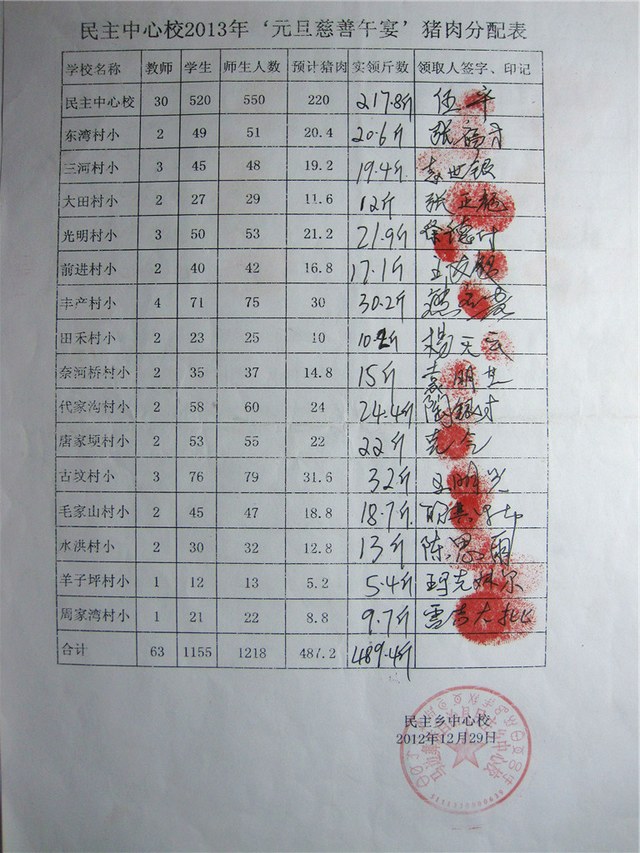 民主中心校2013年‘元旦慈善午宴’猪肉分配表
学校名称 教师 学生 师生人数 预计猪肉 实领斤数 领取人签字、印记
民主中心校 30 520 550 220 217.8斤
东湾村小 2 49 51 20.4 20.6斤
三河村小 3 45 48 19.2 19.4斤 袁世银
大田村小 2 27 29 11.6 12斤
光明村小 3 50 53 21.2 21.9斤
前进村小 2 40 42 16.8 17.1斤
丰产村小 4 71 75 30 30.2斤
田禾村小 2 23 25 10 10.2斤 杨天云
奈河桥村小 2 35 37 14.8 15斤
代家沟村小 2 58 60 24 24.4斤
唐家坝村小 2 53 55 22 22斤
古坟村小 3 76 79 31.6 32斤
毛家山村小 2 45 47 18.8 18.7斤
水洪村小 2 30 32 12.8 13斤
羊子坪村小 1 12 13 5.2 5.4斤
周家湾村小 1 21 22 8.8 9.7斤
合计 63 1155 1218 487.2 489.4斤
民主乡中心校
2012年12月29日